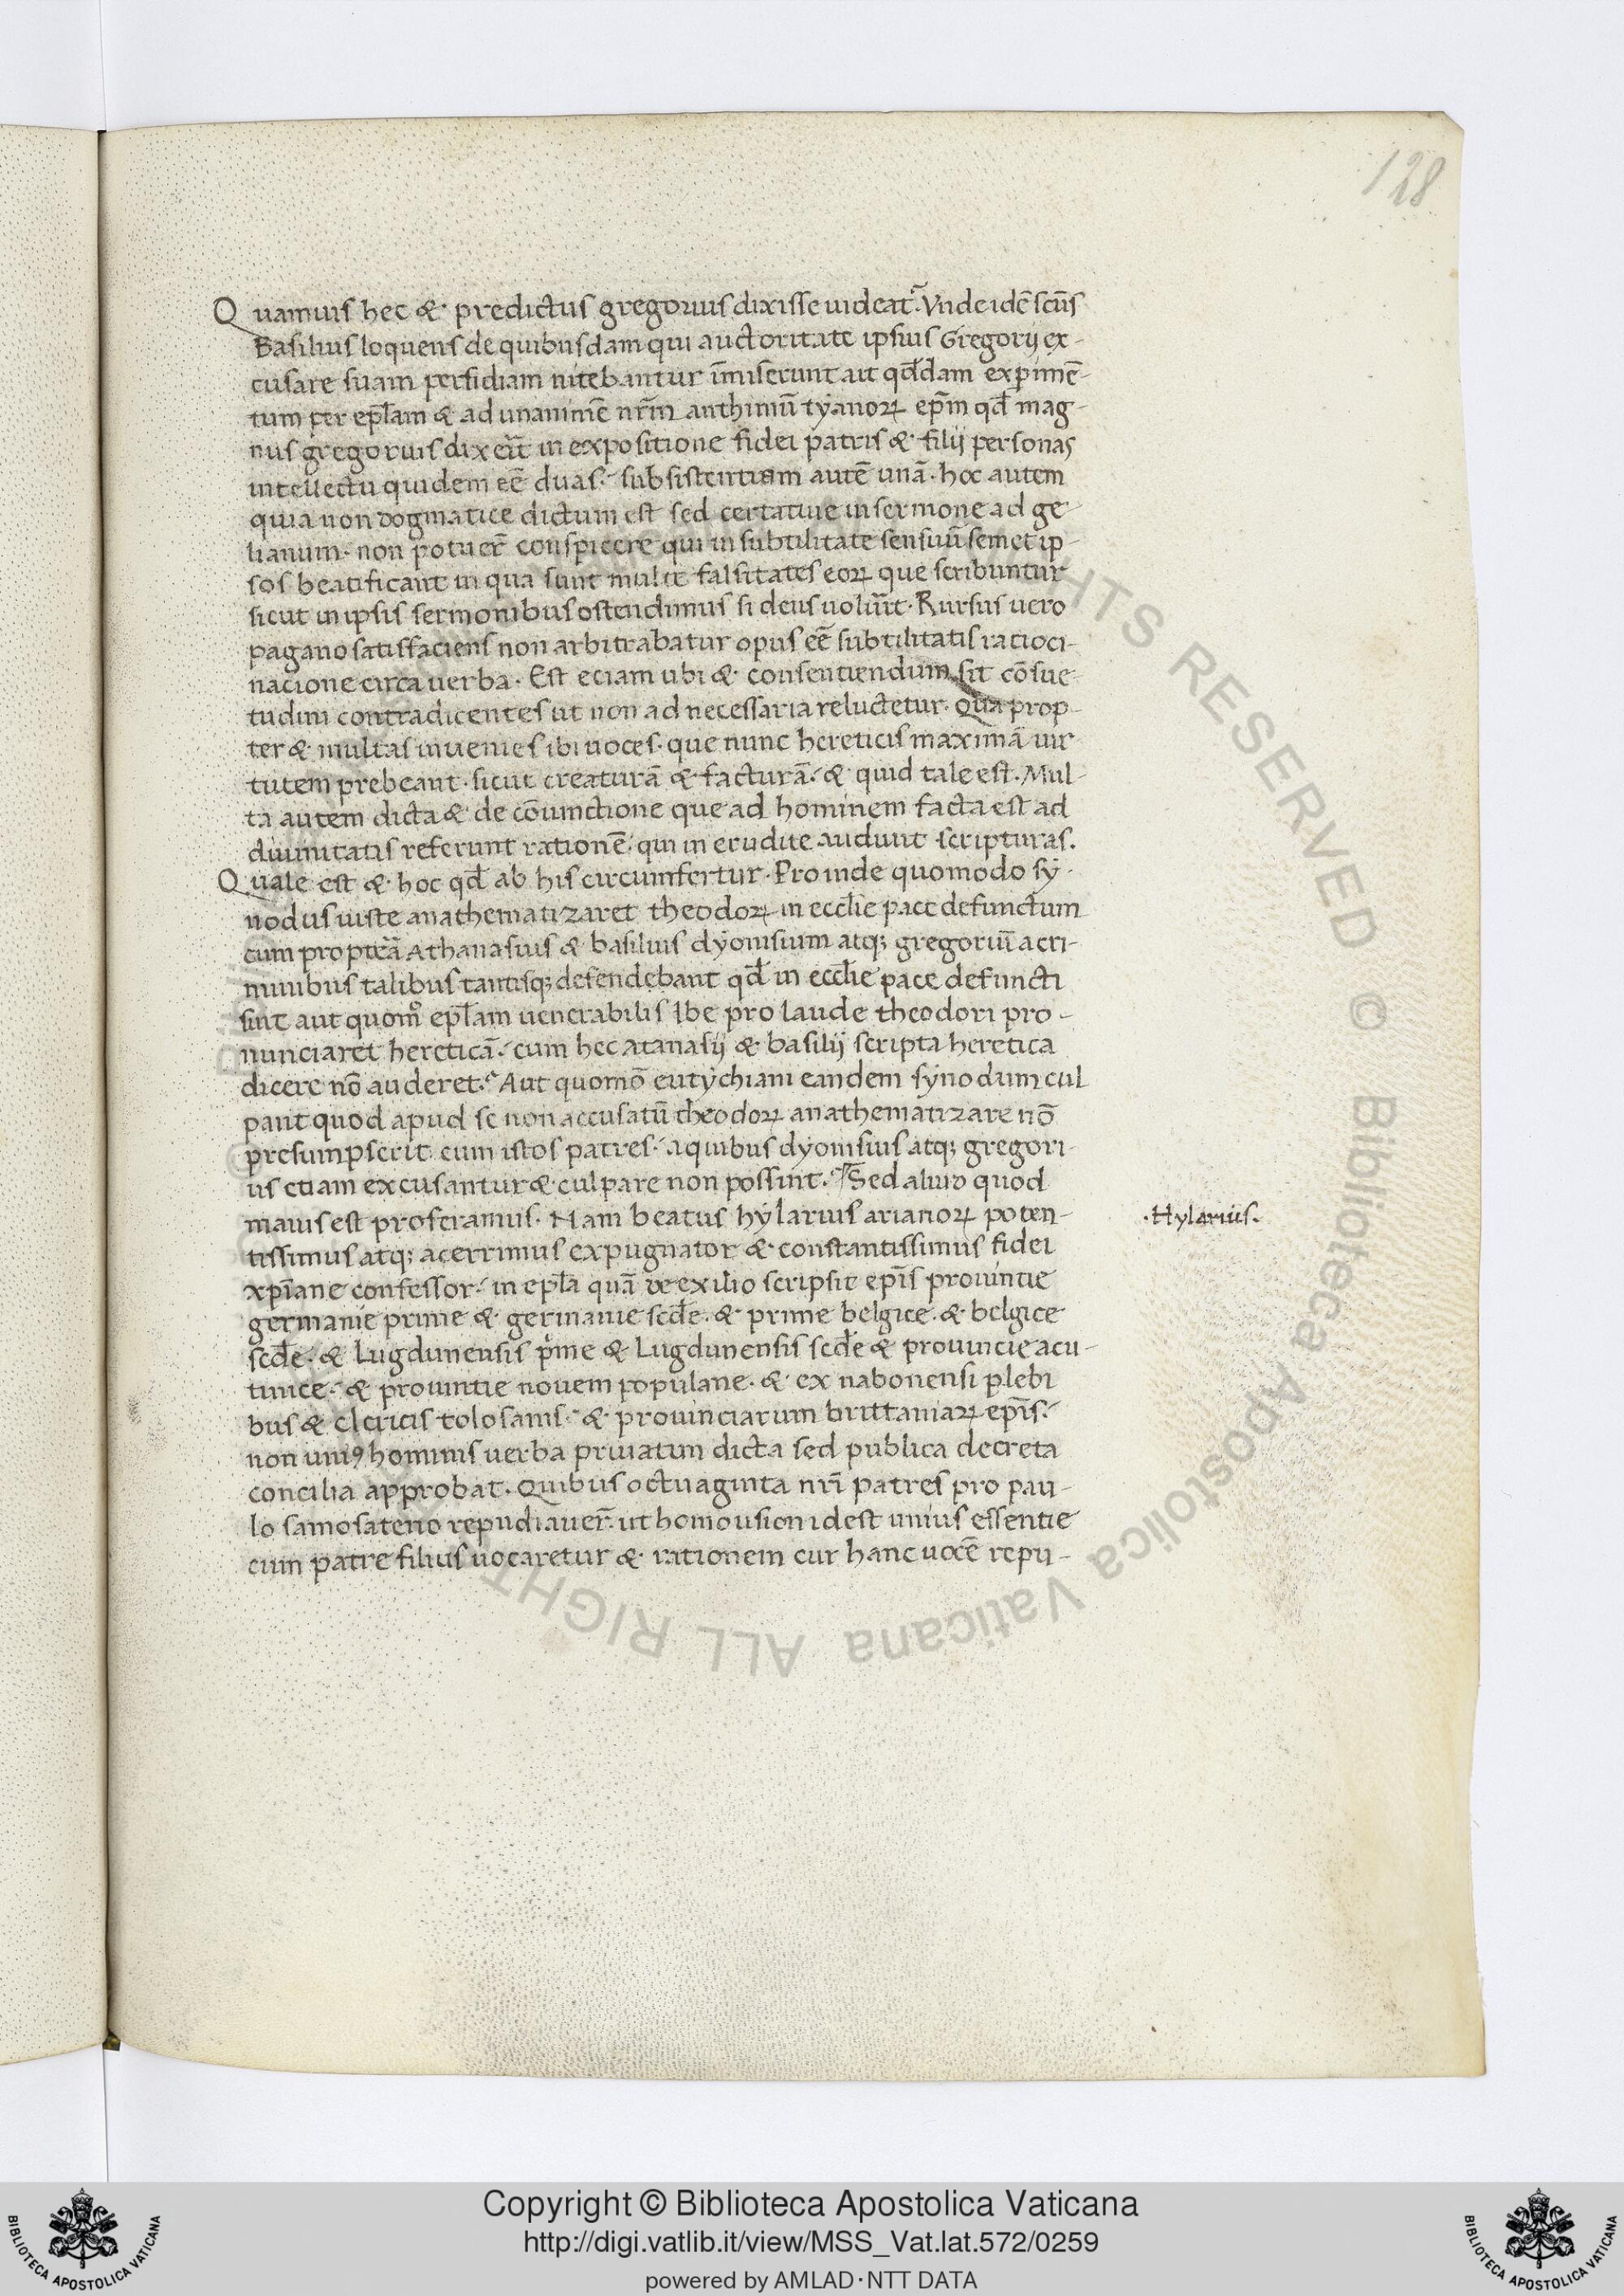 128
Quamuis hec & predictus gregorius dixisse uideat᷑. Vnde idē scūs
Basilius loquens de quibusdam qui auctoritate ipsius Gregorij ex-
cusare suam perfidiam nitebantur īmiserunt ait qđdam experimē-
tum per epłam & ad unanimē nr̄m anthimū tẏanoꝝ ep̄m qđ mag-
nus gregorius dixer̄it in expositione fidei patris & filij personas
intellectu quidem eē duas. subsistentiam autē unā. hoc autem
quia non dogmatice dictum est sed certatiue in sermone ad ge-
lianum. non potuer̄ conspicere qui in subtilitate sensuū semet ip-
sos beatificant in qua sunt multe falsitates eoꝝ que scribuntur
sicut in ipsis sermonibus ostendimus si deus uolūit. Rursus uero
pagano satisfaciens non arbitrabatur opus eē subtilitatis racioci-
nacione circa uerba. Est eciam ubi & consentiendum sit cōsue-
tudini contradicentes ut non ad necessaria reluctetur. Qua prop-
ter & multas inuenies ibi uoces. que nunc hereticis maximā uir
tutem prebeant. sicut creaturā & facturā. & quid tale est. Mul-
ta autem dicta & de cōiunctione que ad hominem facta est ad
diuinitatis referunt rationē. qui in erudite audiunt scripturas.
Quale est & hoc qđ ab his circumfertur. Proinde quomodo sy-
nodus iuste anathematizaret theodoꝝ in eccłie pace defunctum
cum propt̄ea Athanasius & basilius dyonisium atq; gregoriū a cri-
minibus talibus tantisq; defendebant qđ in eccłie pace defuncti
sint aut quom̊ epłam uenerabilis Ibe pro laude theodori pro-
nunciaret hereticā. cum hec atanasij & basilij scripta heretica
dicere nō auderet. Aut quomō eutẏchiani eandem sẏnodum cul
pant quod apud se non accusatū theodoꝝ anathematizare nō
presumpserit cum istos patres. a quibus dyonisius atq; gregori-
us etiam excusantur & culpare non possint. Sed aliud quod
maius est proferamus. Nam beatus hẏlarius arianoꝝ poten-
tissimus atq; acerrimus expugnator & constantissimus fidei
xp̄iane confessor. in epła quā de exilio scripsit ep̄is prouintie
germanie prime & germanie scđe. & prime belgice. & belgice
scđe. & Lugdunensis p̍me & Lugdunensis scđe & prouincie acu-
tinice. & prouintie nouem populane. & ex nabonensi plebi
bus & clericis tolosanis. & prouinciarum brittaniaꝝ ep̄is.
non uniꝰ hominis uerba priuatim dicta sed publica decreta
concilia approbat. Quibus octuaginta nr̄i patres pro pau-
lo samosateno repudiauer̄. ut homousion idest unius essentie
cum patre filius uocaretur & rationem cur hanc uocē repu-
.Hylarius.
Copyright © Biblioteca Apostolica Vaticana
http://digi.vatlib.it/view/MSS_Vat.lat.572/0259
powered by AMLAD·NTT DATA
BIBLIOTECA APOSTOLICA VATICANA
BIBLIOTECA APOSTOLICA VATICANA
ALL RIGHTS RESERVED © Biblioteca Apostolica Vaticana